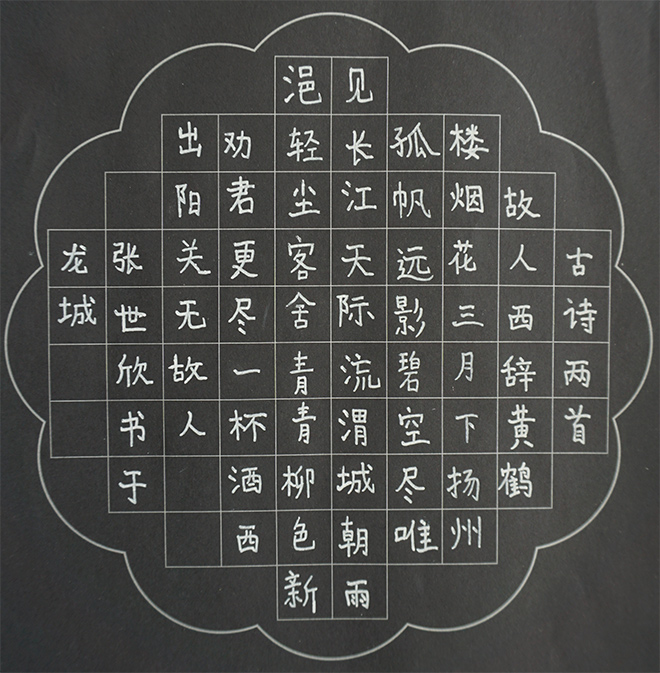 古诗两首
故人西辞黄鹤
楼烟花三月下扬州
孤帆远影碧空尽唯
见长江天际流渭城朝雨
浥轻尘客舍青青柳色新
劝君更尽一杯酒西
出阳关无故人
张世欣书于
龙城